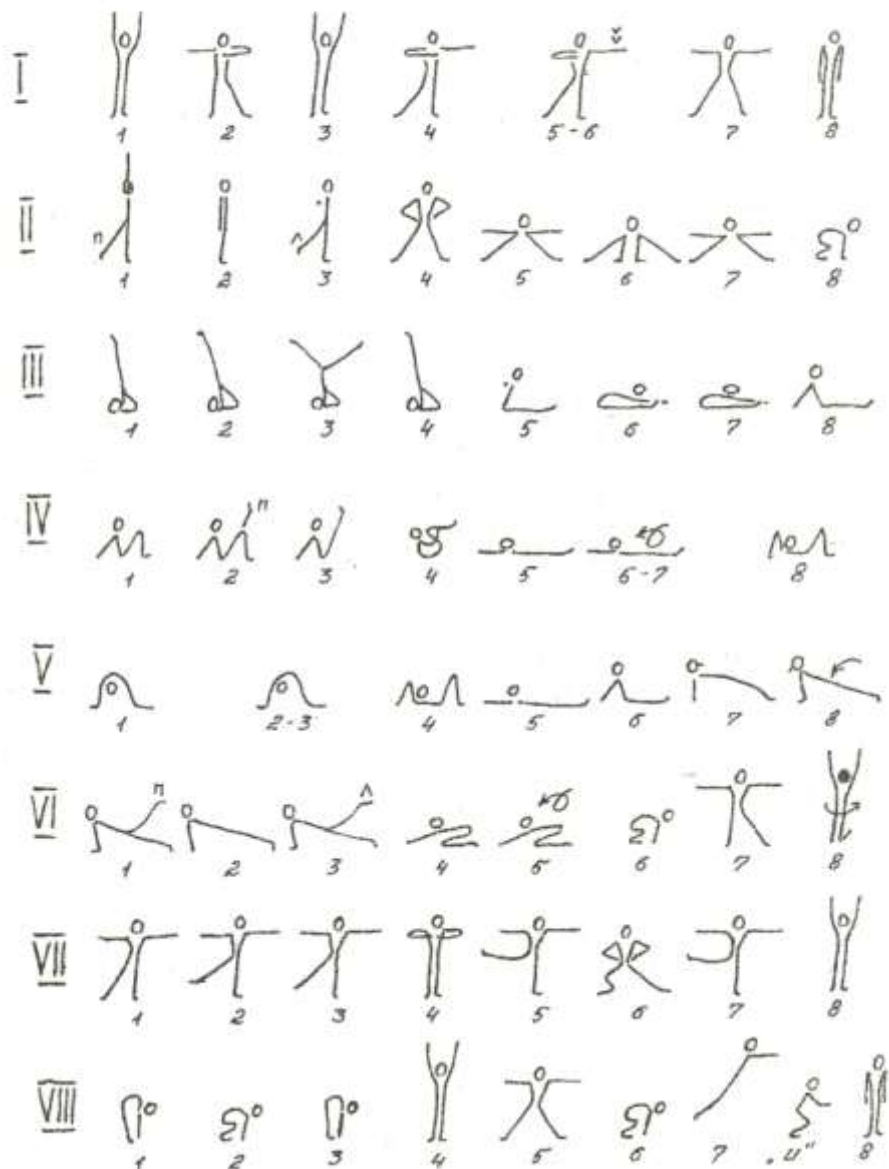 I
1 2 3 4 5-6 7 8
II
п л
1 2 3 4 5 6 7 8
III
1 2 3 4 5 6 7 8
IV
п
1 2 3 4 5 6-7 8
V
1 2-3 4 5 6 7 8
VI
п л
1 2 3 4 5 6 7 8
VII
1 2 3 4 5 6 7 8
VIII
1 2 3 4 5 6 7 „и" 8